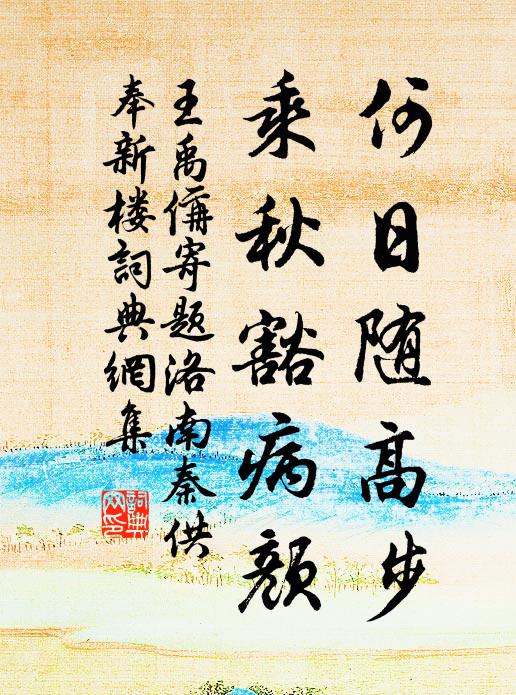 何日随高步
乘秋豁病颜
王禹偁寄题洛南秦供
奉新楼詞典網集
詞典網印